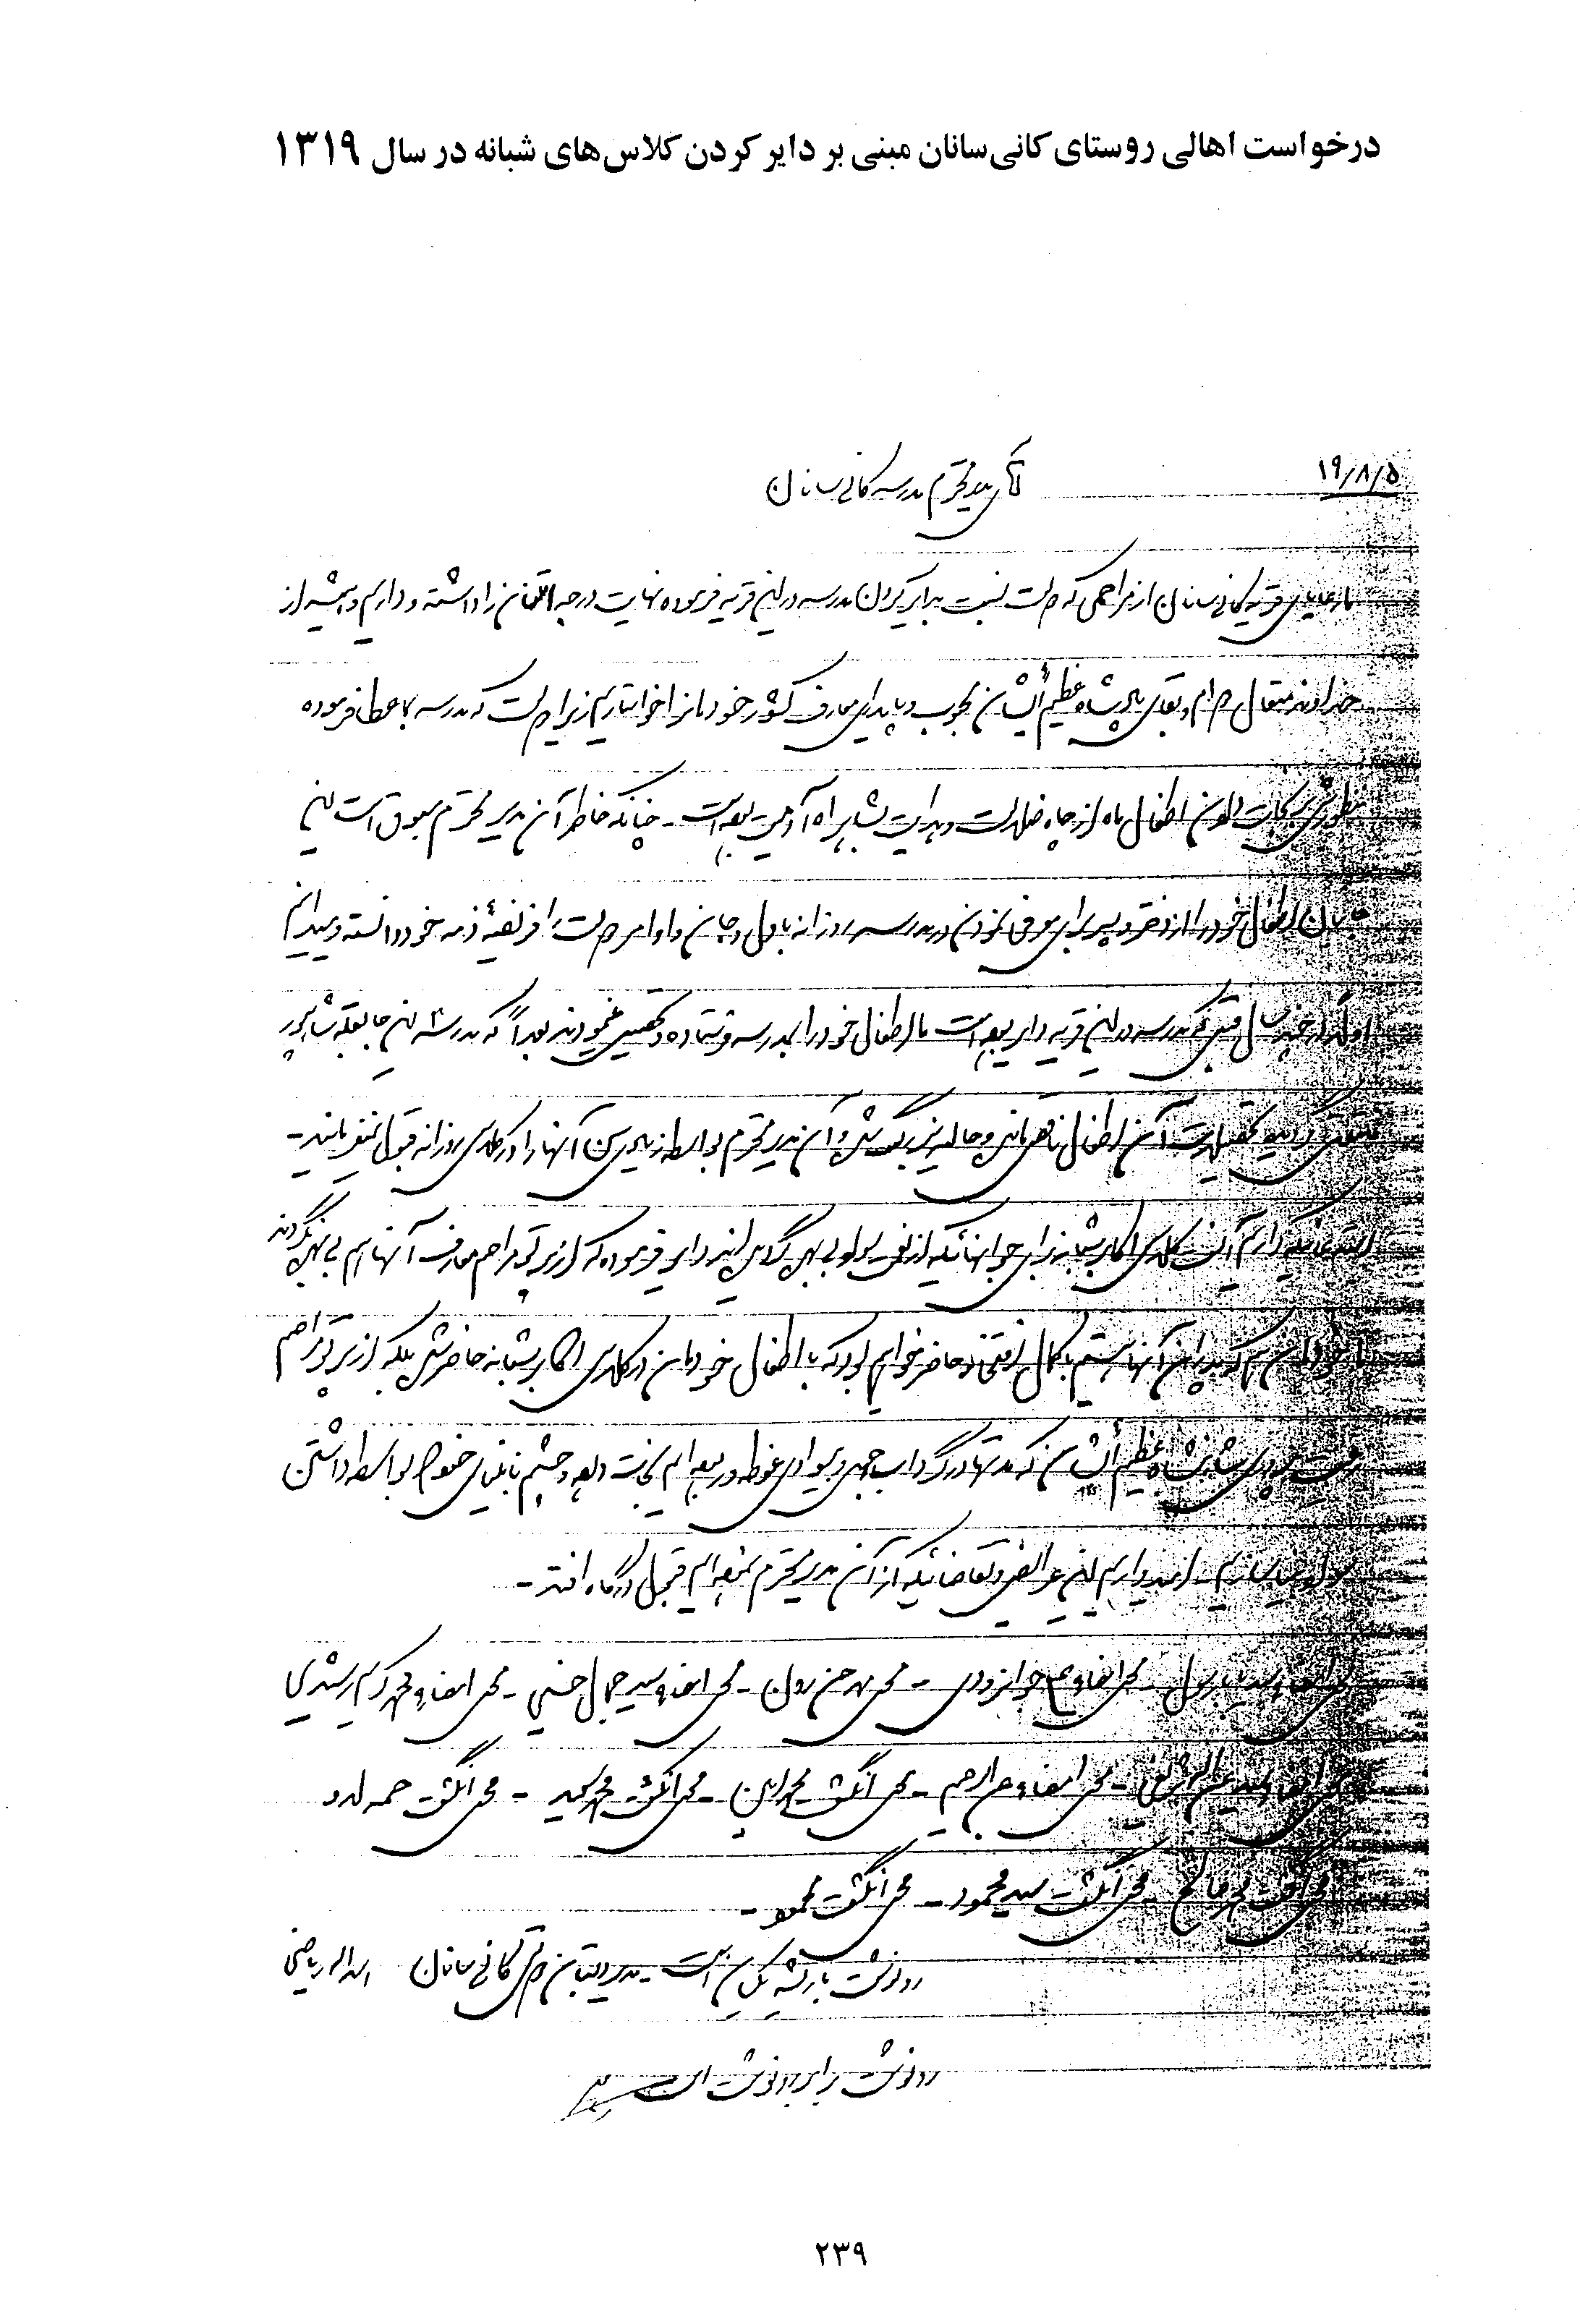 درخواست اهالی روستای کانی‌سانان مبنی بر دایر کردن کلاس‌های شبانه در سال ۱۳۱۹
۱۹/۸/۵
آقای مدیر محترم مدرسه کانی سانان
قریه کانی سانان از مراحمی که دولت نسبت بدایر کردن مدرسه در این قریه فرموده نهایت درجه امتنان را داشته و داریم و همیشه از
خداوند متعال دوام و بقای پادشاه عظیم الشأن محبوب و پایداری معارف کشور خودمانرا خواستاریم زیرا دولت که مدرسه بما عطا فرموده
نجات دادن اطفال ماه از چاه ضلالت و هدایت بشاهراه آدمیت بوده است - چنانکه خاطر آن مدیر محترم مسبوق است این
اطفال خود را از دختر و پسر برای معرفی نمودن در مدرسه روزانه با دل و جان و اوامر دولت را فریضهٔ ذمه خود دانسته و میدانیم
سال قبل که مدرسه در این قریه دایر بوده است ما اطفال خود را بمدرسه فرستاده و تحصیل مینمودند بعداً که مدرسه این جا بقلعه شاهپور
تحصیلات آن اطفال ناقص مانده و حالیه بزرگ شده و آن مدیر محترم بواسطه زیادی سن آنها را در کلاس روزانه قبول نمیفرمایند -
کلاس اکابر شبانه برای جوانهائیکه از نعمت سواد بی بهره گردیده‌اند دایر فرموده که از پرتو مراحم معارف آنها هم بی بهره نگردند
که پدران آنها هستیم با کمال افتخار حاضر خواهیم بود که با اطفال خودمان در کلاس اکابر شبانه حاضر شده بلکه از پرتو مراحم
شاهنشاه عظیم الشأن که مدتها در گرداب جهل و بیسوادی غوطه‌ور بوده ایم نجات داده و چشم نابینای خودمان بواسطه داشتن
سواد بینا سازیم - امیدواریم این عرایض و تقاضائیکه از آن مدیر محترم نموده ایم قبول درگاه افتد -
محل امضاء سید جمال حسینی - محل امضاء محمد کریم رشیدی
محل امضاء عبدالرحیم - محل انگشت محمد امین - محل انگشت محمد سعید - محل انگشت حمه
محل انگشت محمد صالح - محل انگشت سید محمود - محل انگشت محمود -
رونوشت با ریشه یکسان است - مدیر دبستان دولتی کانی سانان اسدالله ریاضی
رونوشت برابر رونوشت است
۲۳۹